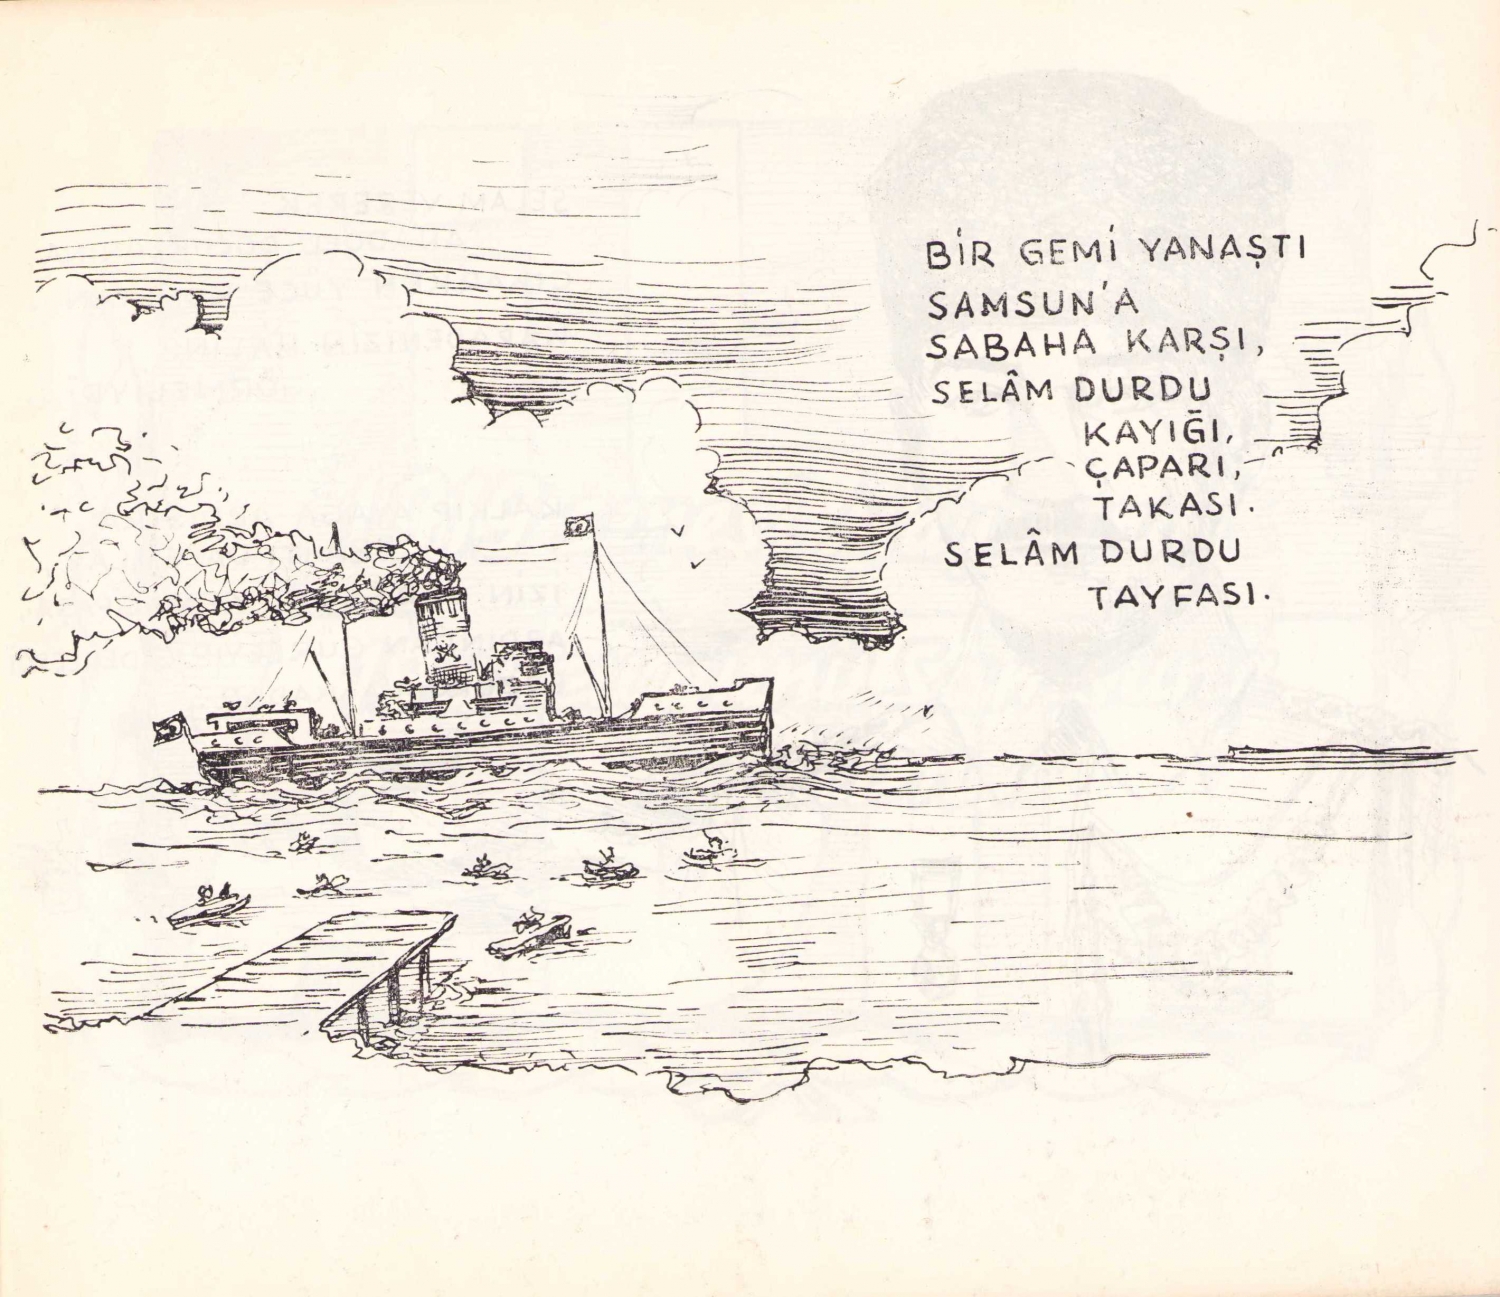 BİR GEMİ YANAŞTI
SAMSUN'A
SABAHA KARŞI,
SELÂM DURDU
KAYIĞI,
ÇAPARI,
TAKASI.
SELÂM DURDU
TAYFASI.